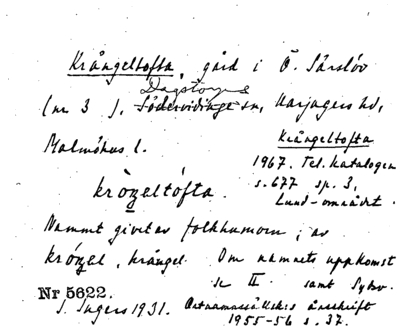 Krångeltofta, gård i Ö. Särslöv
Dagstorps
(nr 3), Södervidinge sn, Harjagers hd,
Malmöhus l.
Krångeltofta
1967. Tel. katalogen
s. 677 sp. 3,
Lund-området.
kròŋeltófta.
Namnt givet av folkhumorn; av
króŋel, krångel. Om namnets uppkomst
se II samt Sydsv.
Nr 5622.
S. Ingers 1931. Ortnamnssällsk:s årsskrift
1955-56 s. 37.